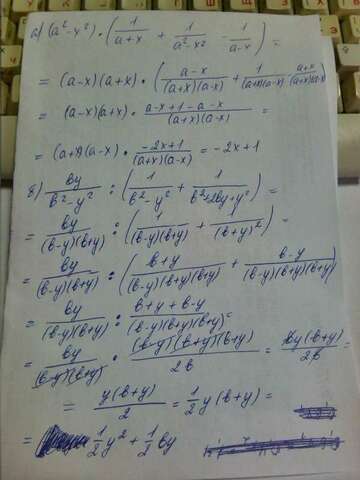 а) (a²-x²)·(1/(a+x) + 1/(a²-x²) - 1/(a-x)) =
= (a-x)(a+x)·((a-x)/((a+x)(a-x)) + 1/((a+x)(a-x)) - (a+x)/((a+x)(a-x)))
= (a-x)(a+x)·(a-x+1-a-x)/((a+x)(a-x)) =
= (a+x)(a-x)·(-2x+1)/((a+x)(a-x)) = -2x+1
б) by/(b²-y²) : (1/(b²-y²) + 1/(b²+2by+y²)) =
= by/((b-y)(b+y)) : (1/((b-y)(b+y)) + 1/(b+y)²) =
= by/((b-y)(b+y)) : ((b+y)/((b-y)(b+y)(b+y)) + (b-y)/((b-y)(b+y)(b+y)))
= by/((b-y)(b+y)) : (b+y+b-y)/((b-y)(b+y)(b+y)) =
= by/((b-y)(b+y)) · ((b-y)(b+y)(b+y))/2b = by(b+y)/2b =
= y(b+y)/2 = 1/2 y(b+y) =
= 1/2 y² + 1/2 by